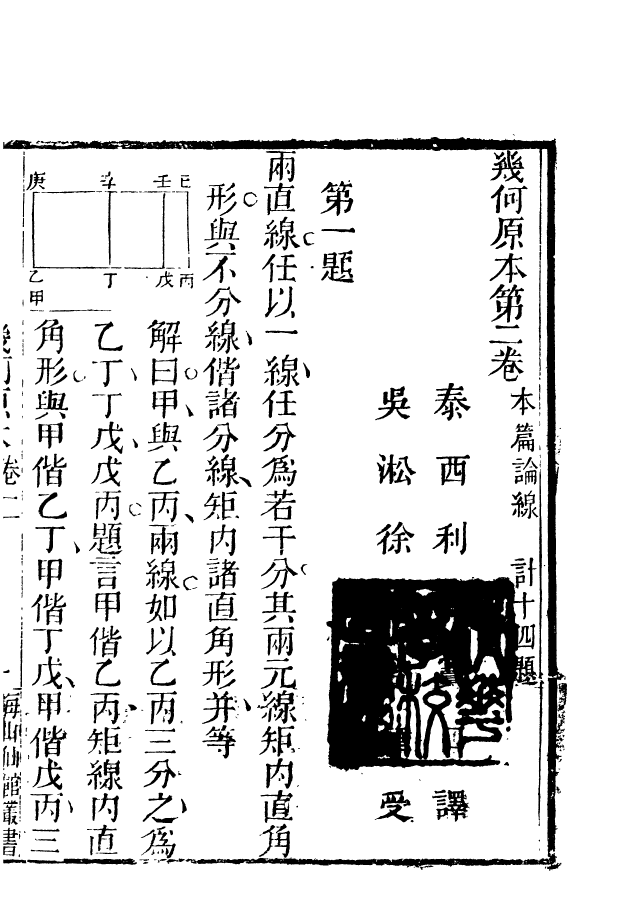 幾何原本第二卷 本篇論線 計十四題
泰西利 譯
吳淞徐 受
第一題
兩直線任以一線任分為若干分其兩元線矩內直角
形與不分線偕諸分線矩內諸直角形并等
解曰甲與乙丙兩線如以乙丙三分之為
乙丁丁戊戊丙題言甲偕乙丙矩線內直
角形與甲偕乙丁甲偕丁戊甲偕戊丙三
庚 辛 壬 己
乙 丁 戊 丙
甲
幾何原本 卷二 一 海山仙館叢書